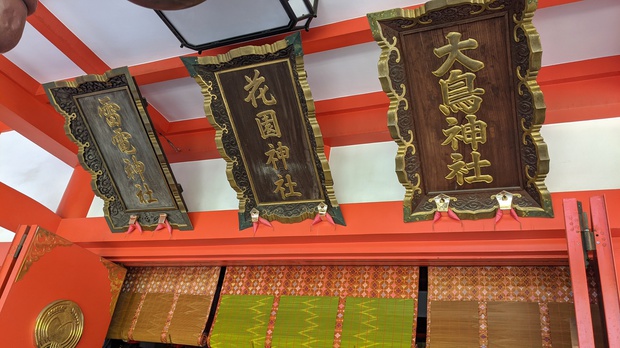 大鳥神社
花園神社
雷電神社